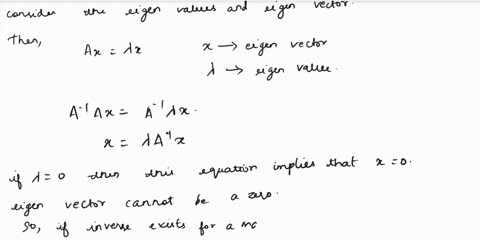 consider the eigen values and eigen vector.
Then,
Ax = λx    x → eigen vector
λ → eigen value.
A⁻¹Ax = A⁻¹λx.
x = λA⁻¹x
if λ = 0 then this equation implies that x = 0.
eigen vector cannot be a zero.
so, if inverse exists for a